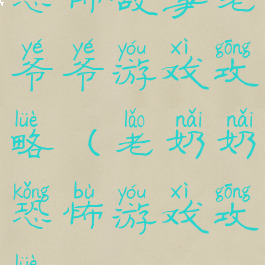 yé yé yóu xì gōng
爷爷游戏攻
lüè lǎo nǎi nǎi
略（老奶奶
kǒng bù yóu xì gōng
恐怖游戏攻
lüè